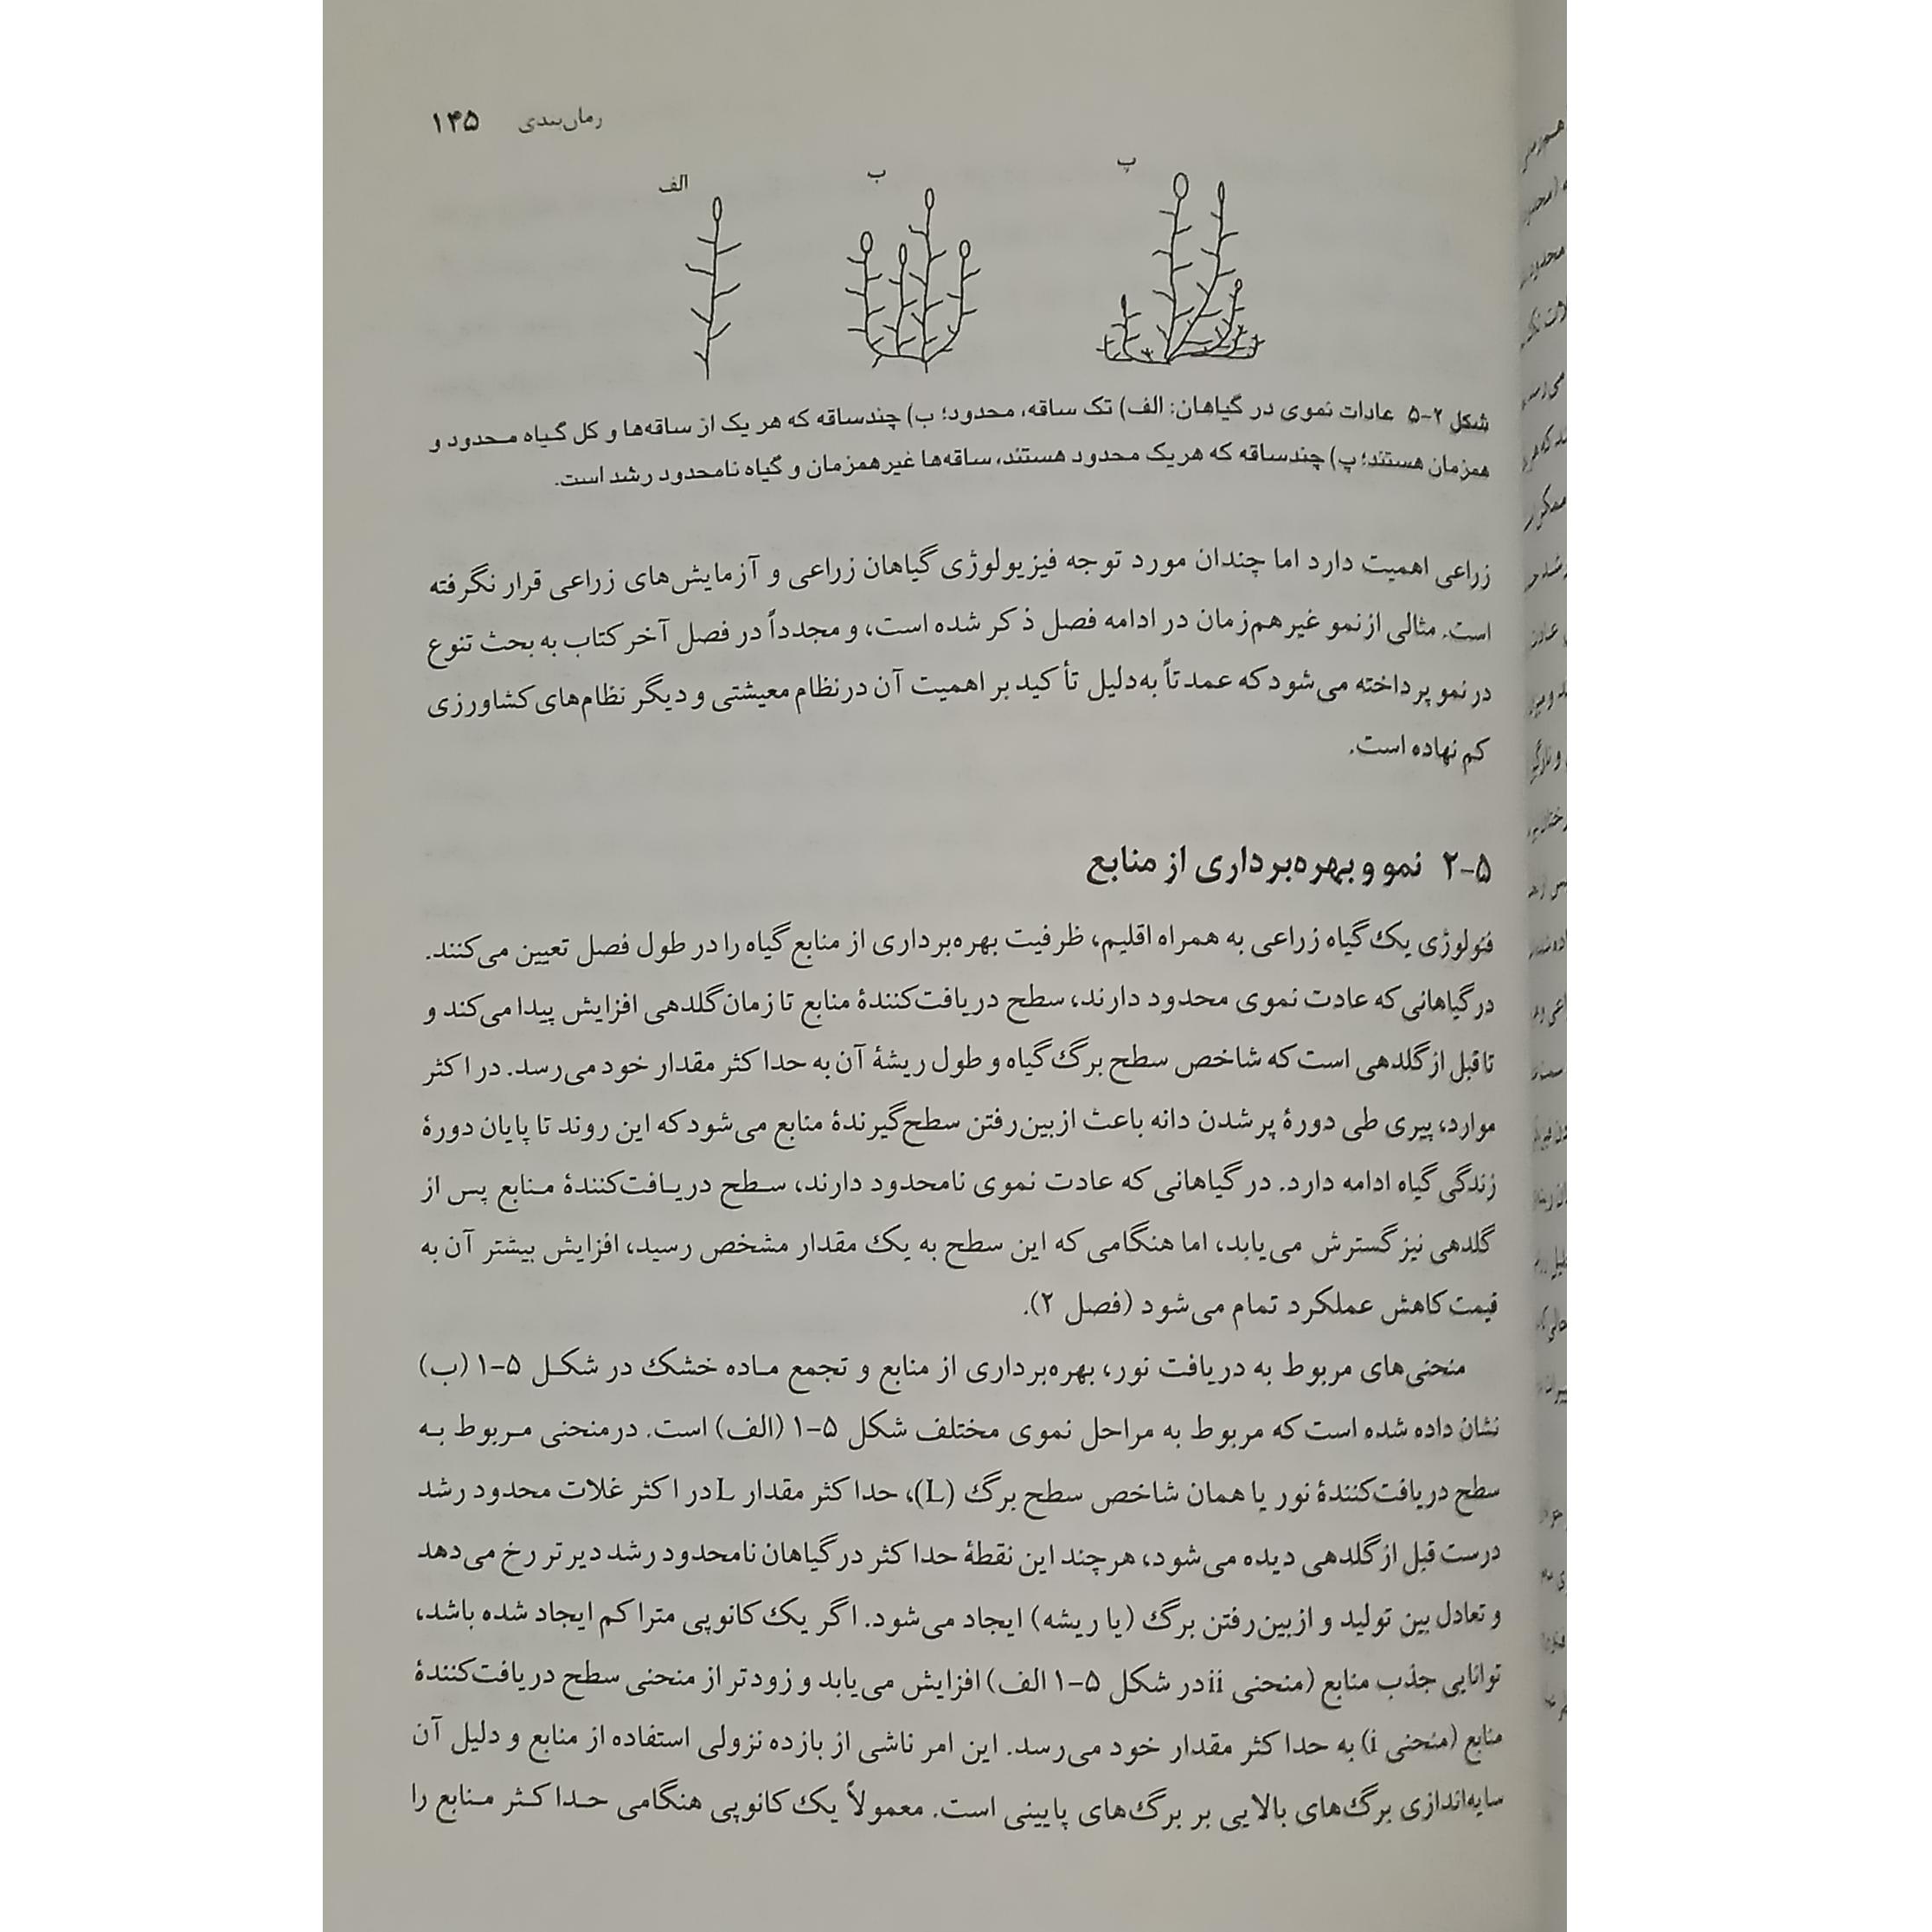 زمان‌بندی ۱۴۵
الف
ب
پ
شکل ۲-۵ عادات نموی در گیاهان: الف) تک ساقه، محدود؛ ب) چندساقه که هر یک از ساقه‌ها و کل گیاه محدود و
همزمان هستند؛ پ) چندساقه که هریک محدود هستند، ساقه‌ها غیرهمزمان و گیاه نامحدود رشد است.
زراعی اهمیت دارد اما چندان مورد توجه فیزیولوژی گیاهان زراعی و آزمایش‌های زراعی قرار نگرفته
است. مثالی از نمو غیر هم‌زمان در ادامه فصل ذکر شده است، و مجدداً در فصل آخر کتاب به بحث تنوع
در نمو پرداخته می‌شود که عمدتاً به‌دلیل تأکید بر اهمیت آن در نظام معیشتی و دیگر نظام‌های کشاورزی
کم نهاده است.
۲-۵ نمو و بهره‌برداری از منابع
فنولوژی یک گیاه زراعی به همراه اقلیم، ظرفیت بهره‌برداری از منابع گیاه را در طول فصل تعیین می‌کنند.
در گیاهانی که عادت نموی محدود دارند، سطح دریافت‌کنندهٔ منابع تا زمان گلدهی افزایش پیدا می‌کند و
تا قبل از گلدهی است که شاخص سطح برگ گیاه و طول ریشهٔ آن به حداکثر مقدار خود می‌رسد. در اکثر
موارد، پیری طی دورهٔ پر شدن دانه باعث ازبین‌رفتن سطح گیرندهٔ منابع می‌شود که این روند تا پایان دورهٔ
زندگی گیاه ادامه دارد. در گیاهانی که عادت نموی نامحدود دارند، سطح دریافت‌کنندهٔ منابع پس از
گلدهی نیز گسترش می‌یابد، اما هنگامی که این سطح به یک مقدار مشخص رسید، افزایش بیشتر آن به
قیمت کاهش عملکرد تمام می‌شود (فصل ۲).
منحنی‌های مربوط به دریافت نور، بهره‌برداری از منابع و تجمع ماده خشک در شکل ۵-۱ (ب)
نشان داده شده است که مربوط به مراحل نموی مختلف شکل ۵-۱ (الف) است. درمنحنی مربوط به
سطح دریافت‌کنندهٔ نور یا همان شاخص سطح برگ (L)، حداکثر مقدار L در اکثر غلات محدود رشد
درست قبل از گلدهی دیده می‌شود، هرچند این نقطهٔ حداکثر در گیاهان نامحدود رشد دیرتر رخ می‌دهد
و تعادل بین تولید و ازبین‌رفتن برگ (یا ریشه) ایجاد می‌شود. اگر یک کانوپی متراکم ایجاد شده باشد،
توانایی جذب منابع (منحنی ii در شکل ۵-۱ الف) افزایش می‌یابد و زودتر از منحنی سطح دریافت‌کنندهٔ
منابع (منحنی i) به حداکثر مقدار خود می‌رسد. این امر ناشی از بازده نزولی استفاده از منابع و دلیل آن
سایه‌اندازی برگ‌های بالایی بر برگ‌های پایینی است. معمولاً یک کانوپی هنگامی حداکثر منابع را